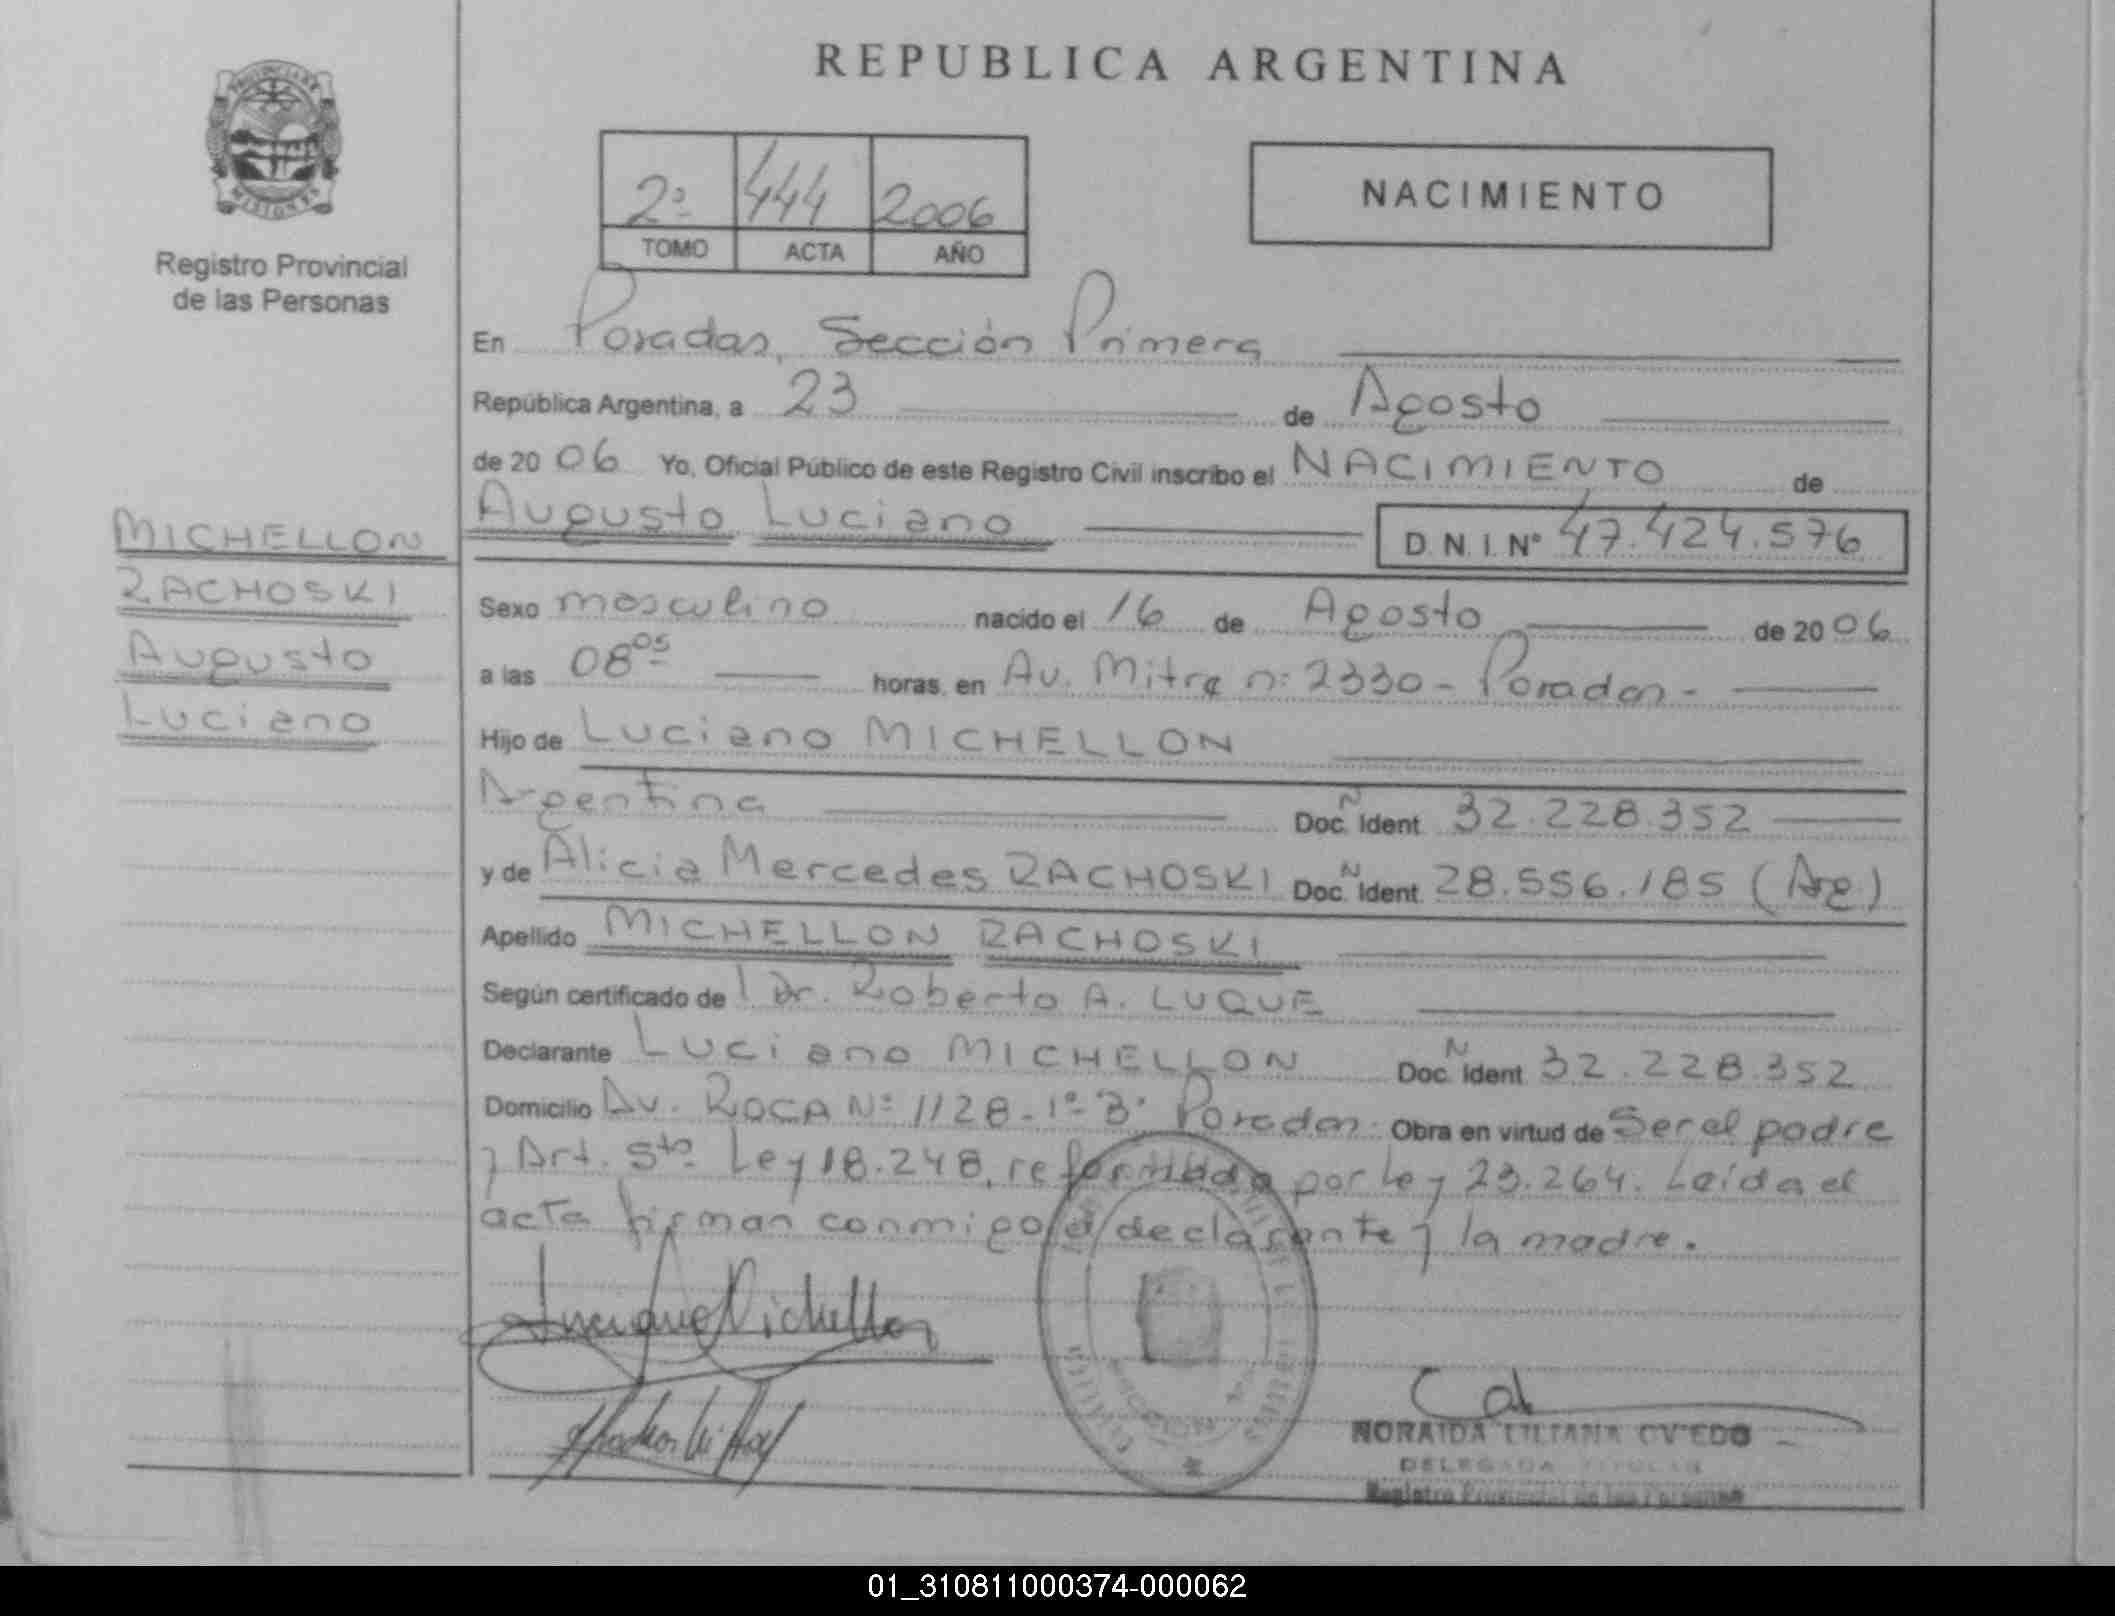 REPUBLICA ARGENTINA
PROVINCIA DE
MISIONES
Registro Provincial
de las Personas
2º 444 2006
TOMO ACTA AÑO
NACIMIENTO
En Posadas, Sección Primera
República Argentina, a 23 de Agosto
de 2006 Yo, Oficial Público de este Registro Civil inscribo el NACIMIENTO de
Augusto Luciano D. N. I. Nº 47.424.576
MICHELLON
RACHOSKI
Augusto
Luciano
Sexo masculino nacido el 16 de Agosto de 2006
a las 08 05 horas, en Av. Mitre nº 2330 - Posadas -
Hijo de Luciano MICHELLON
Argentina Doc. Ident. Nº 32.228.352
y de Alicia Mercedes RACHOSKI Doc. Ident. Nº 28.556.185 (Arg)
Apellido MICHELLON RACHOSKI
Según certificado de Dr. Roberto A. LUQUE
Declarante Luciano MICHELLON Doc. Ident. Nº 32.228.352
Domicilio Av. ROCA Nº 1128 - 1º B. Posadas. Obra en virtud de Ser el padre
y Art. 5to Ley 18.248, reformada por Ley 23.264. Leída el
acta firman conmigo el declarante y la madre.
NORAIDA LILIANA OVIEDO
DELEGADA TITULAR
Registro Provincial de las Personas
01_310811000374-000062